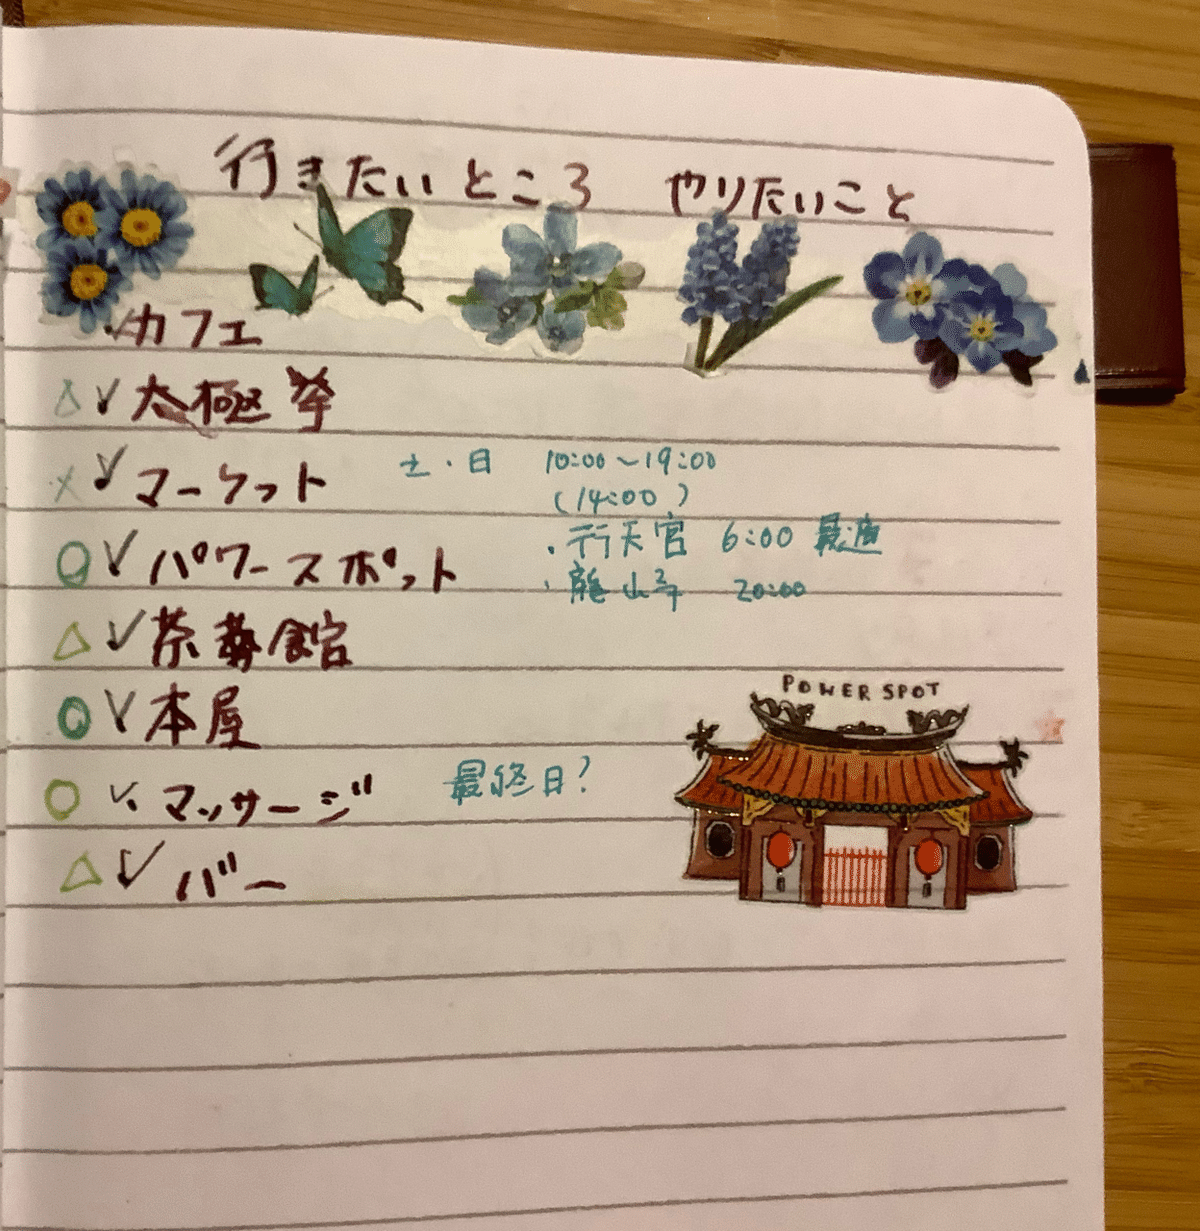 行きたいところ　やりたいこと
✓カフェ
△✓太極拳
×✓マーケット　土・日　10:00～19:00
(14:00)
○✓パワースポット　・行天宮　6:00 最適
・龍山寺　20:00
△✓茶藝館
○✓本屋
POWER SPOT
○✓マッサージ　最終日?
△✓バー